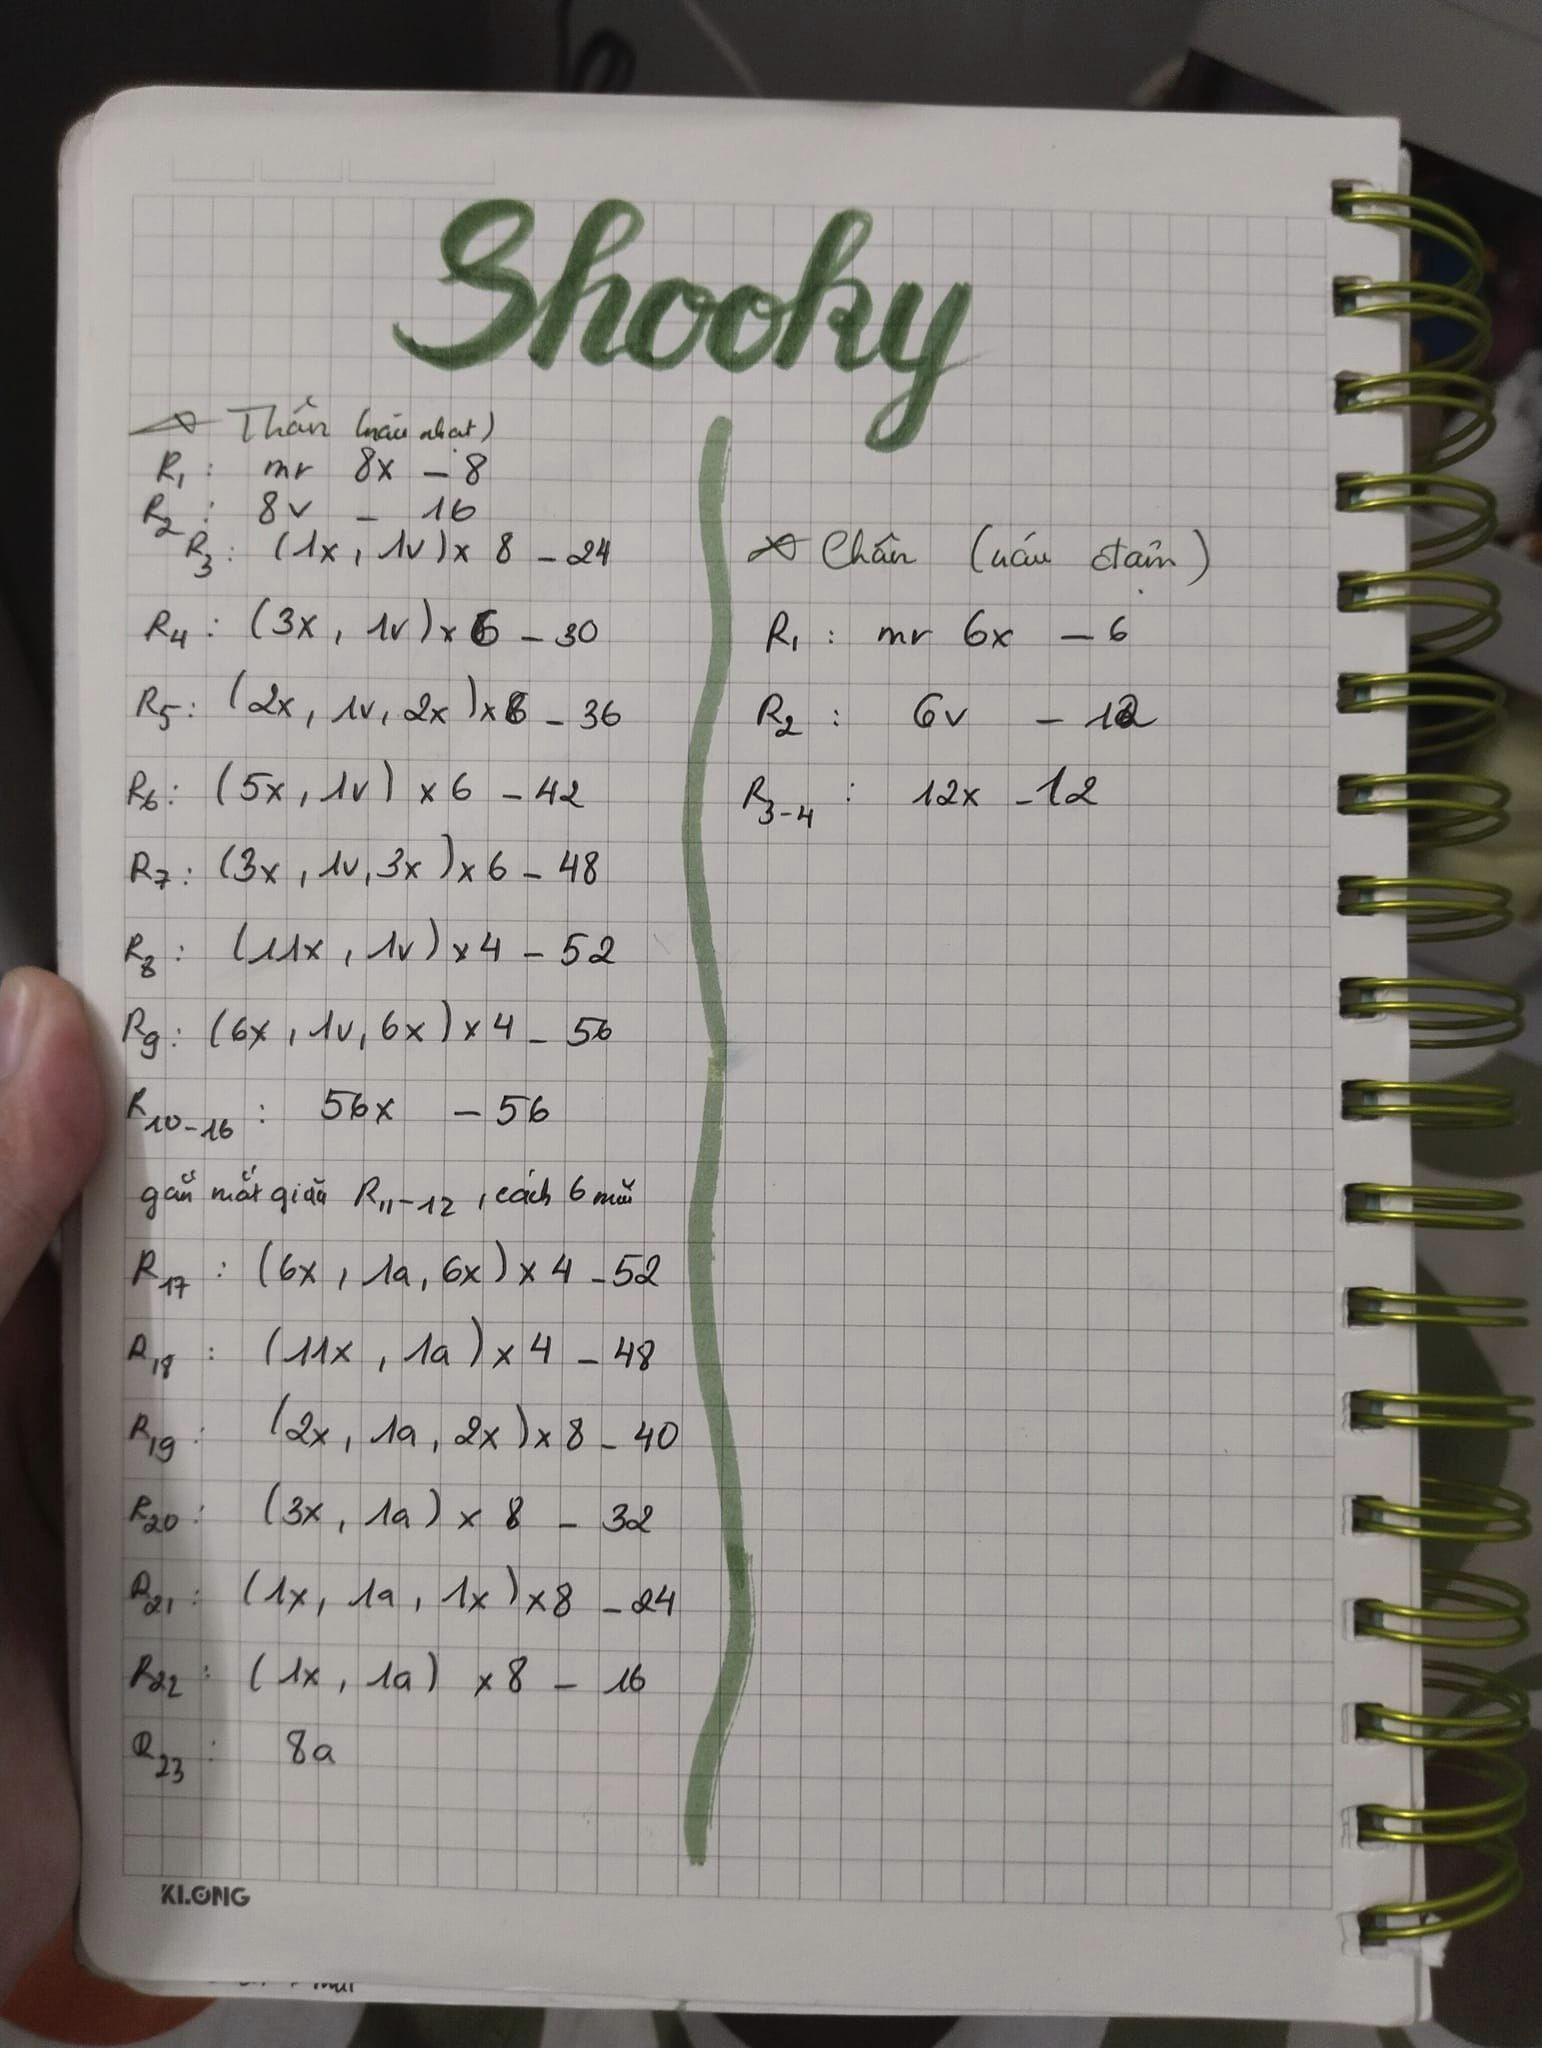 Shooky
Thân (nâu nhạt)
R1: mr 8x - 8
R2: 8v - 16
R3: (1x, 1v) x 8 - 24
R4: (3x, 1v) x 6 - 30
R5: (2x, 1v, 2x) x 6 - 36
R6: (5x, 1v) x 6 - 42
R7: (3x, 1v, 3x) x 6 - 48
R8: (11x, 1v) x 4 - 52
R9: (6x, 1v, 6x) x 4 - 56
R10-16: 56x - 56
gắn mắt giữa R11-12, cách 6 mũi
R17: (6x, 1a, 6x) x 4 - 52
R18: (11x, 1a) x 4 - 48
R19: (2x, 1a, 2x) x 8 - 40
R20: (3x, 1a) x 8 - 32
R21: (1x, 1a, 1x) x 8 - 24
R22: (1x, 1a) x 8 - 16
R23: 8a
Chân (nâu đậm)
R1: mr 6x - 6
R2: 6v - 12
R3-4: 12x - 12
KLONG